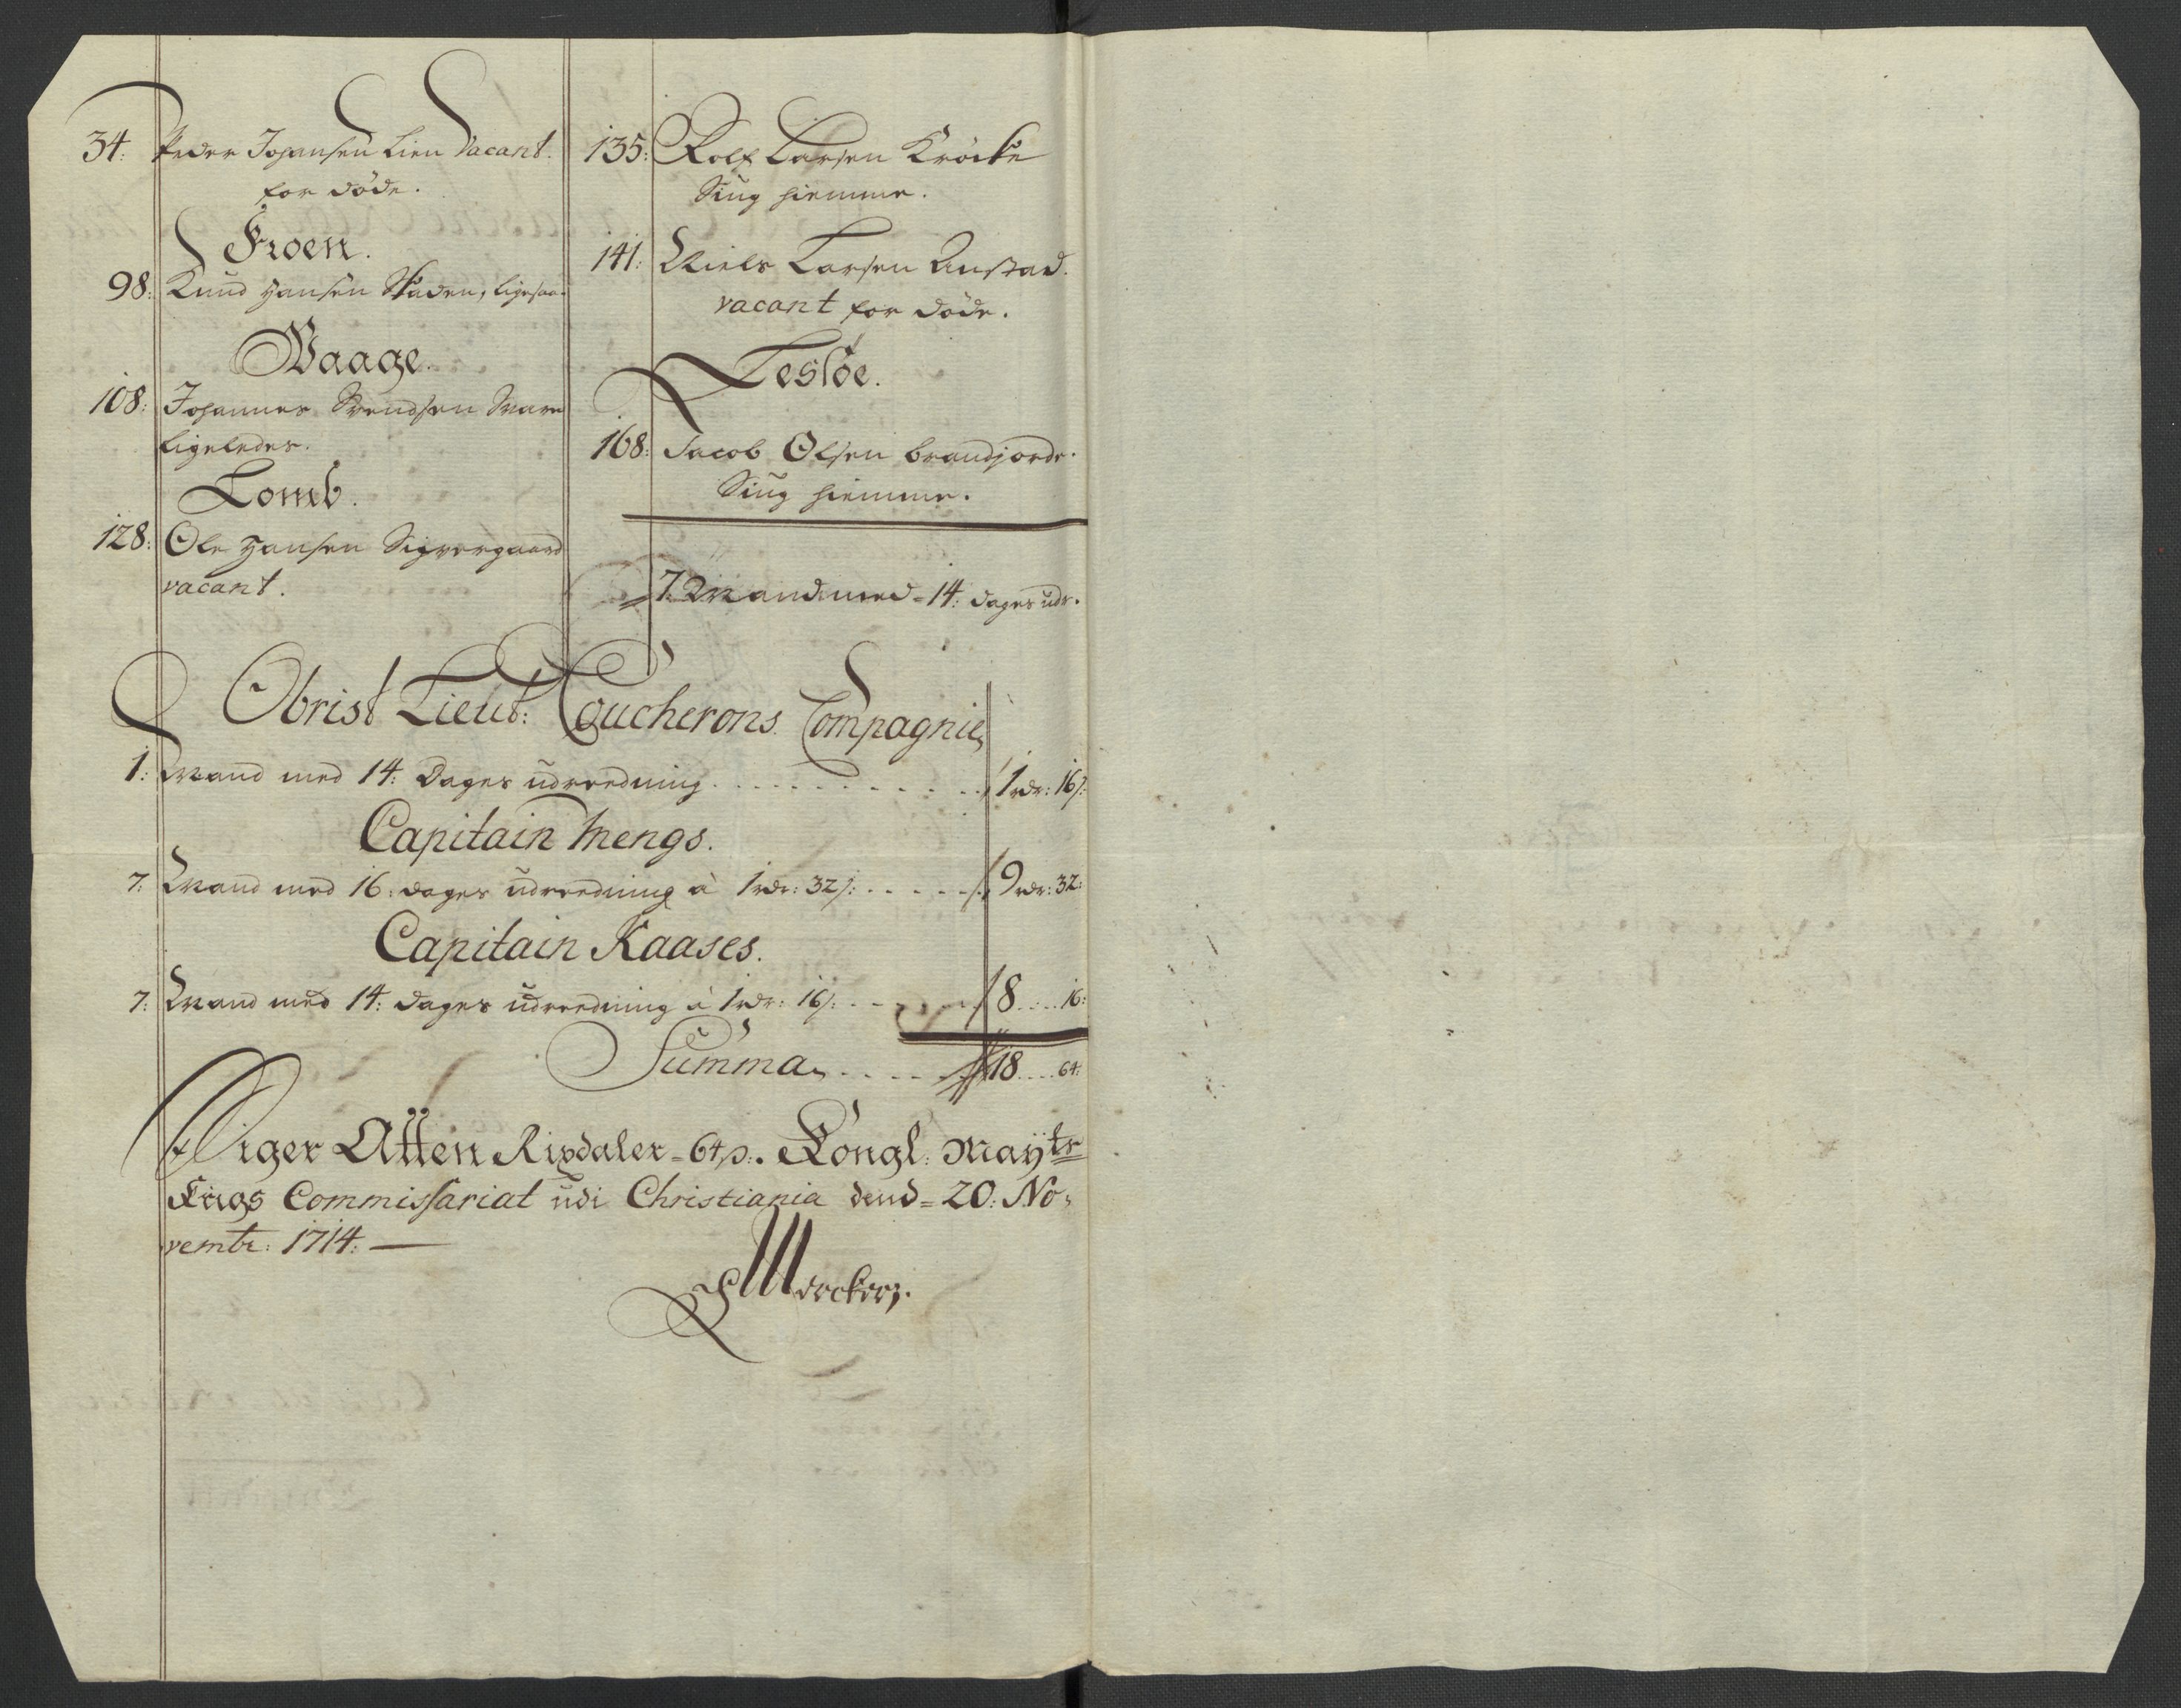 34: Peder Johansen Lien Vacant.
for døde.
Froen.
98: Knud Hansen Skaden, ligesaa.
Waage.
108: Johannes Svendsen
ligeledes.
Lomb.
128: Ole Hansen Sigvergaard
vacant.
135: Rolf Larsen Kröcke
Siug hiemme.
141: Niels Larsen Anstad.
vacant for døde.
Lesløe.
168: Jacob Olsen brandjorde.
Siug hiemme.
7. Mand med 14: dages udr.
Obrist Lieut: Coucherons Compagnie,
1: Mand med 14: Dages udreedning . . . . . . . . . . 1 rdr: 16 s:
Capitain Mengs.
7: Mand med 16: dages udreedning à 1 rdr: 32 s: . . . . . 9 rdr: 32:
Capitain Kaases.
7: Mand med 14: dages udreedning à 1 rdr: 16 s: . . . . 8 . . . . 16:
Summa . . . . . 18 . . . . 64:
Siger Atten Rixdaler - 64 s:. Kongl: Mayts
Krigs Commissariat udi Christiania dend = 20: No-
vembr: 1714: —